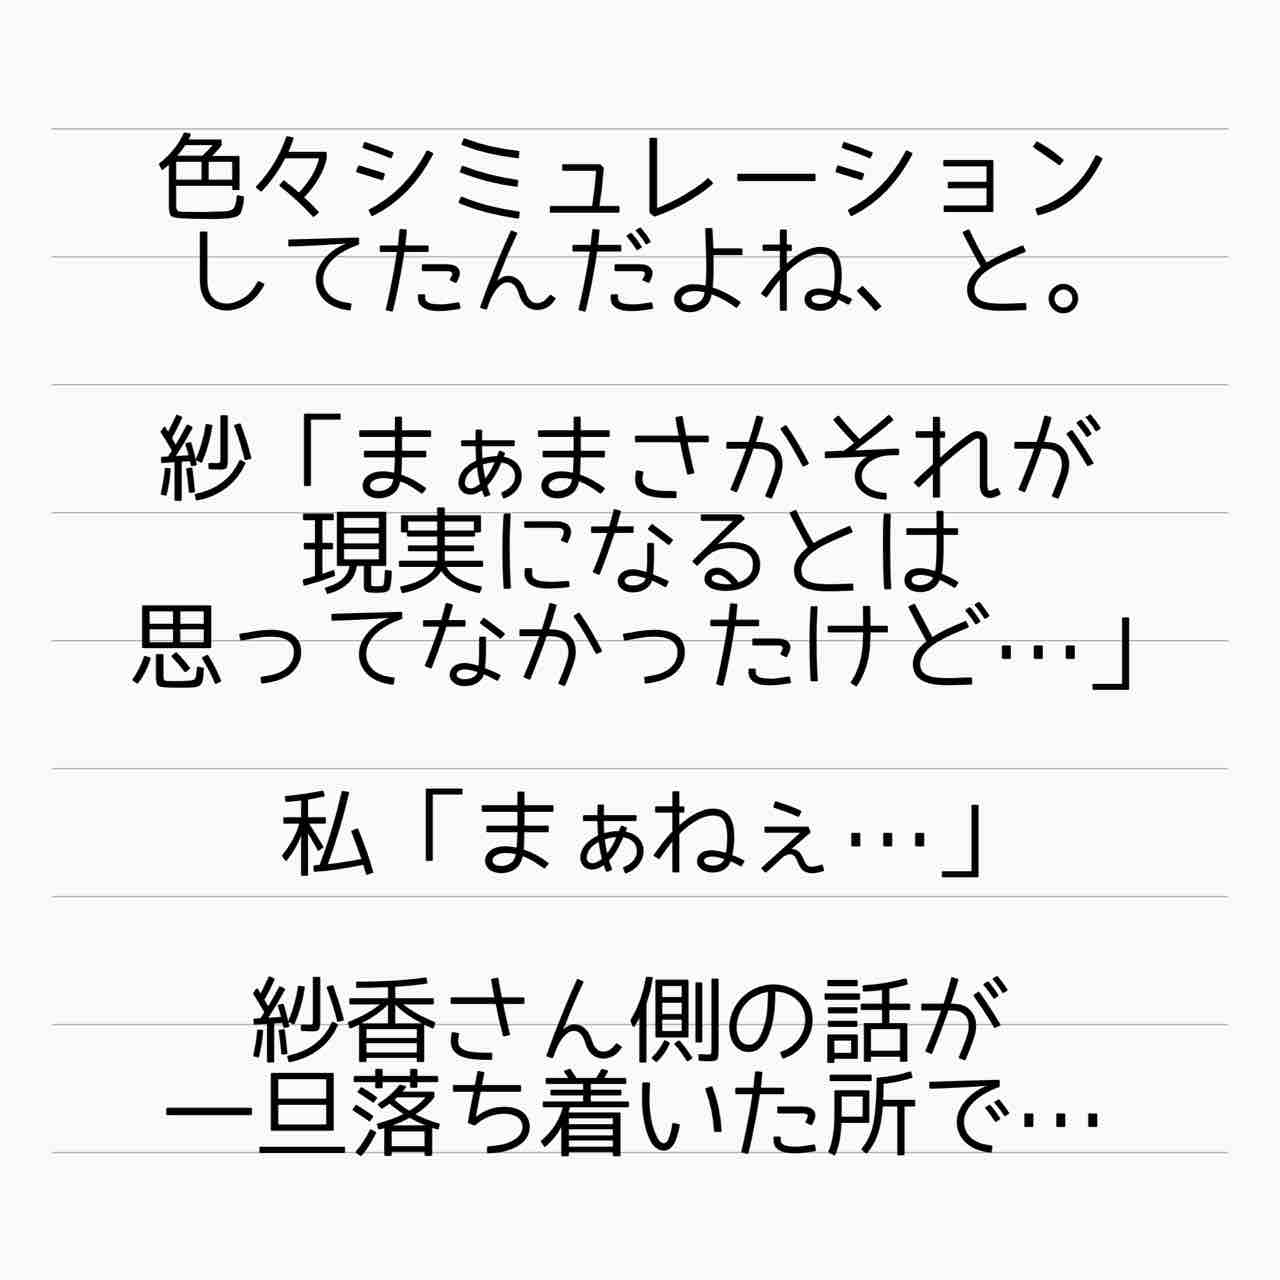 色々シミュレーション
してたんだよね、と。
紗「まぁまさかそれが
現実になるとは
思ってなかったけど…」
私「まぁねぇ…」
紗香さん側の話が
一旦落ち着いた所で…